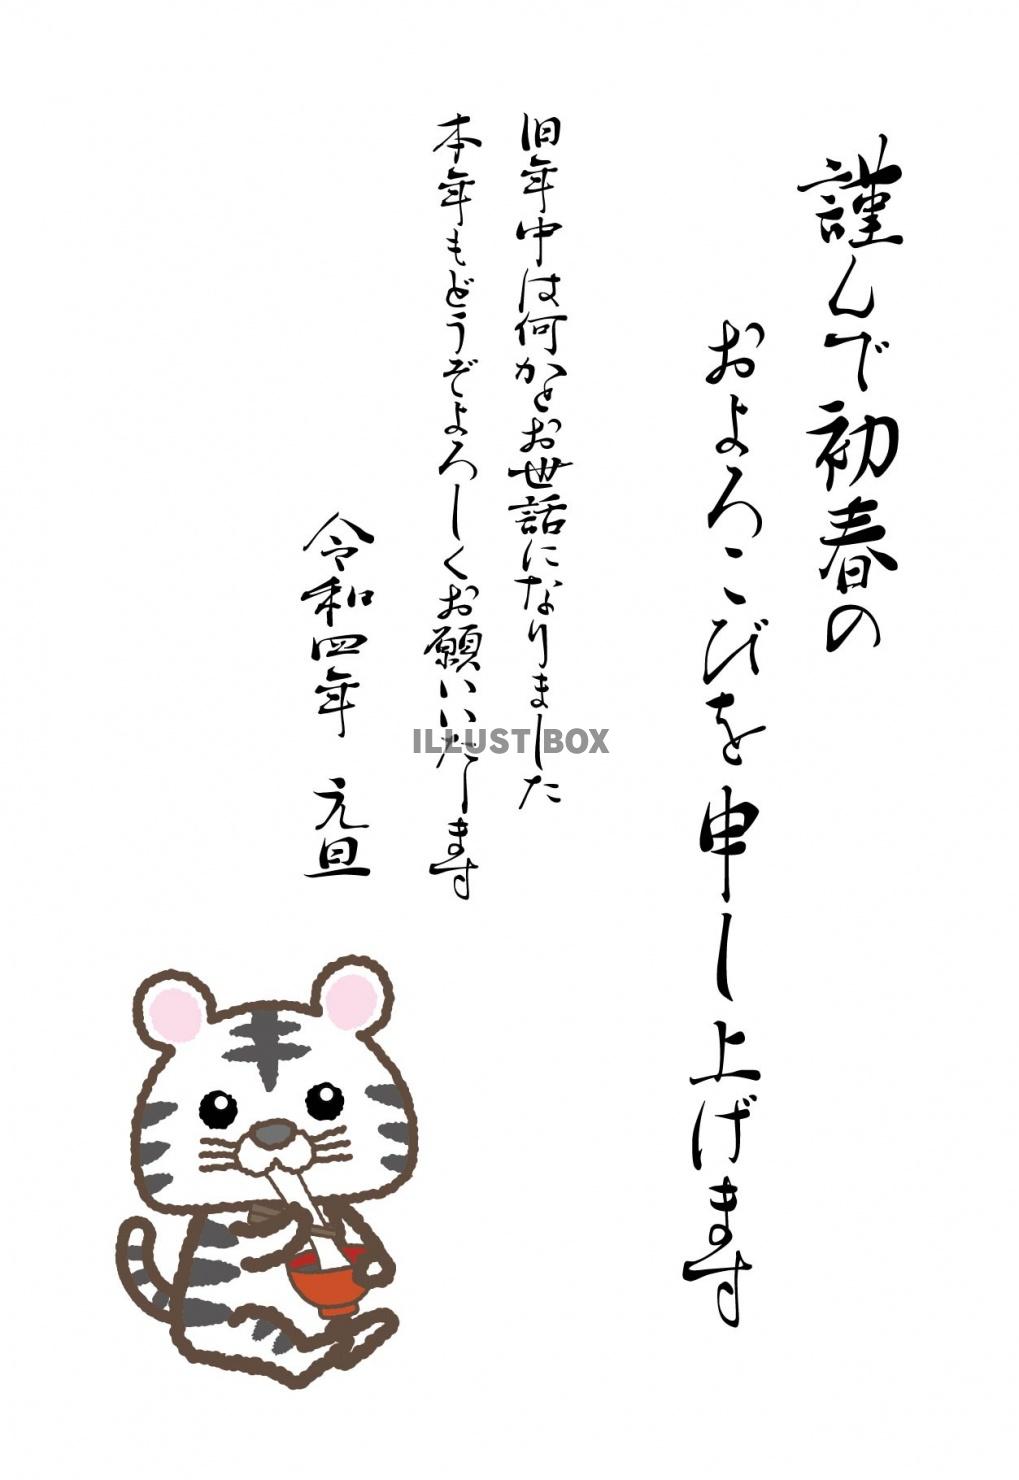 謹んで初春の
およろこびを申し上げます
旧年中は何かとお世話になりました
本年もどうぞよろしくお願いいたします
令和四年　元旦
ILLUST BOX